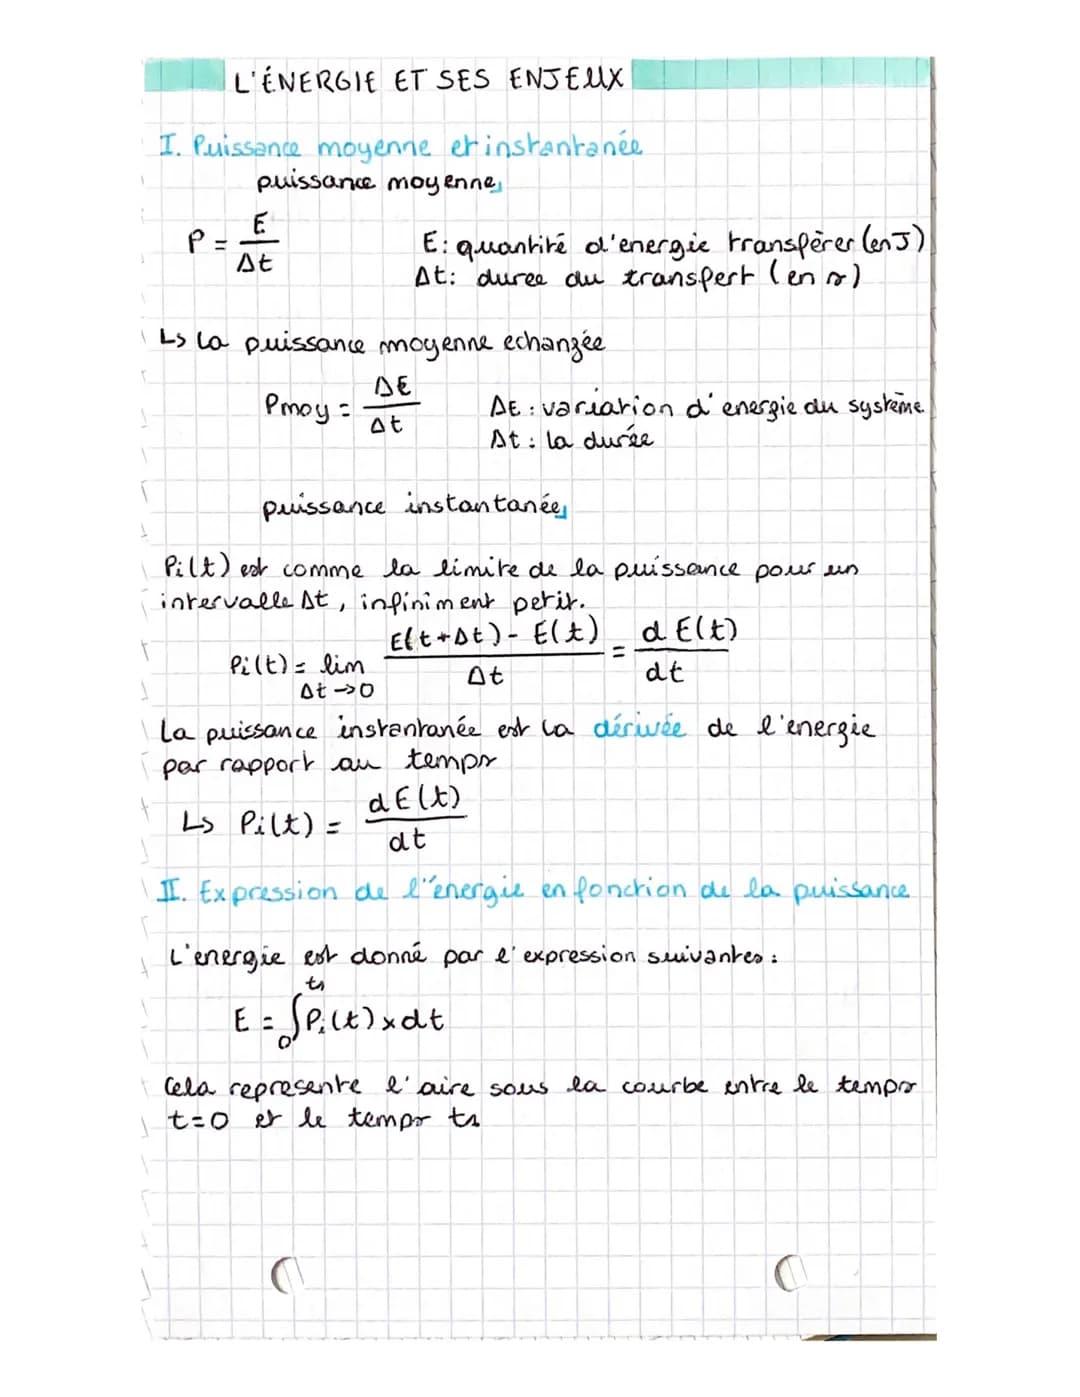 L'ÉNERGIE ET SES ENJEUX
I. Puissance moyenne et instantanée
puissance moyenne
P = E / Δt
E: quantité d'energie transpèrer (en J)
Δt: duree du transfert (en s)
↳ la puissance moyenne echangée
Pmoy = ΔE / Δt
ΔE : variation d'energie du système
Δt : la durée
puissance instantanée
Pi(t) est comme la limite de la puissance pour un
intervalle Δt, infiniment petit.
Pi(t) = lim Δt→0 E(t+Δt) - E(t) / Δt = d E(t) / dt
La puissance instantanée est la dérivée de l'energie
par rapport au temps
↳ Pi(t) = dE(t) / dt
II. Expression de l'énergie en fonction de la puissance
L'energie est donné par l'expression suivantes :
E = ∫₀^t₁ Pi(t) x dt
Cela represente l'aire sous la courbe entre le temps
t=0 et le temps t₁